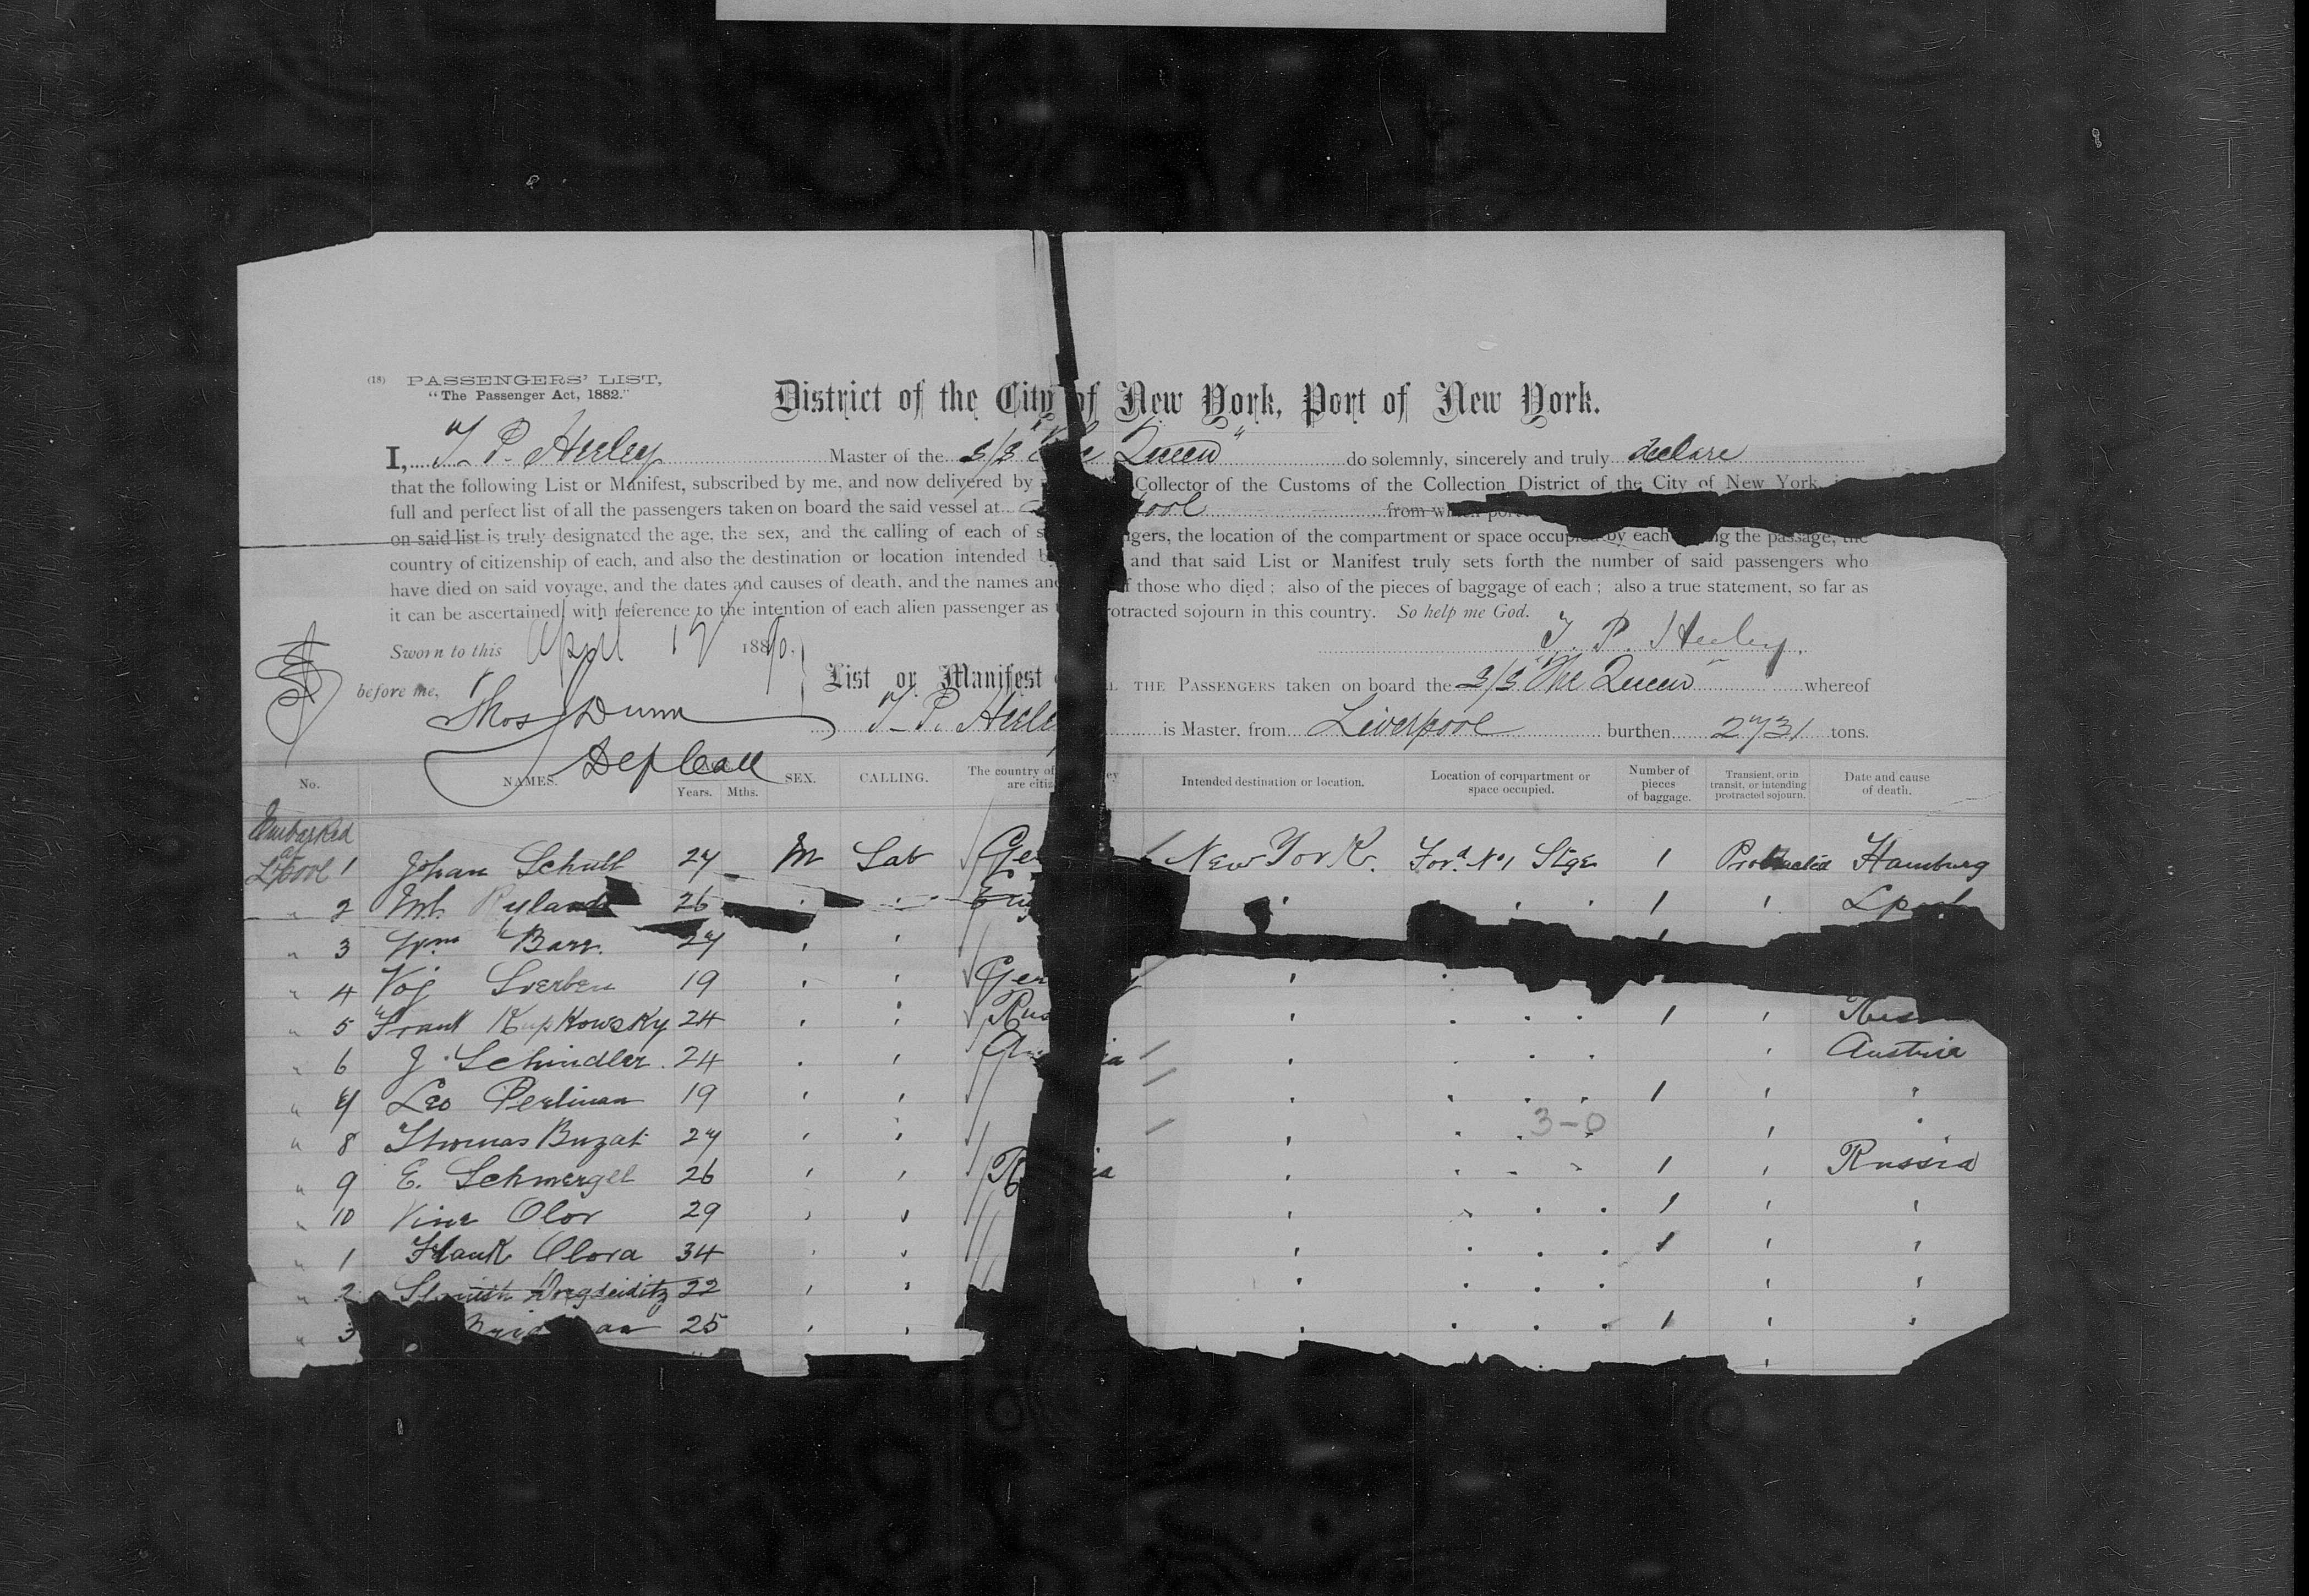 (18) PASSENGERS' LIST,
"The Passenger Act, 1882."
District of the City of New York, Port of New York.
I, T. P. Heeley Master of the s/s "The Queen" do solemnly, sincerely and truly declare
that the following List or Manifest, subscribed by me, and now delivered by Collector of the Customs of the Collection District of the City of New York,
full and perfect list of all the passengers taken on board the said vessel at pool from which port
on said list is truly designated the age, the sex, and the calling of each of gers, the location of the compartment or space occupied by each ng the passage, the
country of citizenship of each, and also the destination or location intended and that said List or Manifest truly sets forth the number of said passengers who
have died on said voyage, and the dates and causes of death, and the names and those who died; also of the pieces of baggage of each; also a true statement, so far as
it can be ascertained, with reference to the intention of each alien passenger as rotracted sojourn in this country. So help me God.
T. P. Heeley.
Sworn to this April 17 1890.
before me, Thos J Dunn
Dep Coll
List or Manifest THE PASSENGERS taken on board the s/s "The Queen" whereof
T. P. Heele is Master, from Liverpool burthen 2731 tons.
No. NAMES. Years. Mths. SEX. CALLING. The country of are citiz Intended destination or location. Location of compartment or space occupied. Number of pieces of baggage. Transient, or in transit, or intending protracted sojourn. Date and cause of death.
Embarked at
L'pool 1 Johan Schutt 27 M Lab Ge New York. For'd No 1 Stge 1 Protracted Hamburg
" 2 Ryland 26 ' ' Eng ' ' ' 1 ' Lpool
" 3 Wm Barr. 27 ' '
" 4 Voj Sverben 19 ' ' Ger '
" 5 Frank Kupkowsky 24 ' ' Rus ' . . . 1 '
" 6 J. Schindler. 24 ' ' Au ia ' . . . ' Austria
" 7 Leo Perlman 19 ' ' ' . . . 1 ' '
" 8 Thomas Buzat 27 ' ' ' . . 3-0 ' '
" 9 E. Schmergel 26 ' ' R ia ' . . . 1 ' Russia
" 10 Vine Olor 29 ' ' ' . . . 1 ' '
" 1 Frank Olora 34 ' ' ' . . . 1 ' '
" 2 22 ' ' ' . . . ' '
" 3 25 ' ' ' . . . 1 ' '